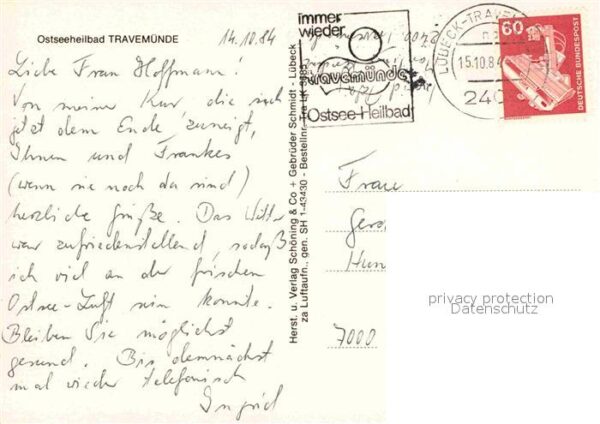 Ostseeheilbad TRAVEMÜNDE
14.10.84
Liebe Frau Hoffmann!
Von meiner Kur, die sich
jetzt dem Ende zuneigt,
Ihnen und Frankes
(wenn sie noch da sind)
herzliche Grüße. Das Wetter
war zufriedenstellend, sodaß
ich viel an der frischen
Ostsee-Luft sein konnte.
Bleiben Sie möglichst
gesund. Bis demnächst
mal wieder telefonisch
Ingrid
Herst. u. Verlag Schöning & Co + Gebrüder Schmidt · Lübeck
za Luftaufn., gen. SH 1-43430 - Bestellnr. Tra LK
immer
wieder
travemünde
Ostsee-Heilbad
LÜBECK-TRAVE
15.10.84
240
60
DEUTSCHE BUNDESPOST
Frau
Hun
7000
privacy protection
Datenschutz